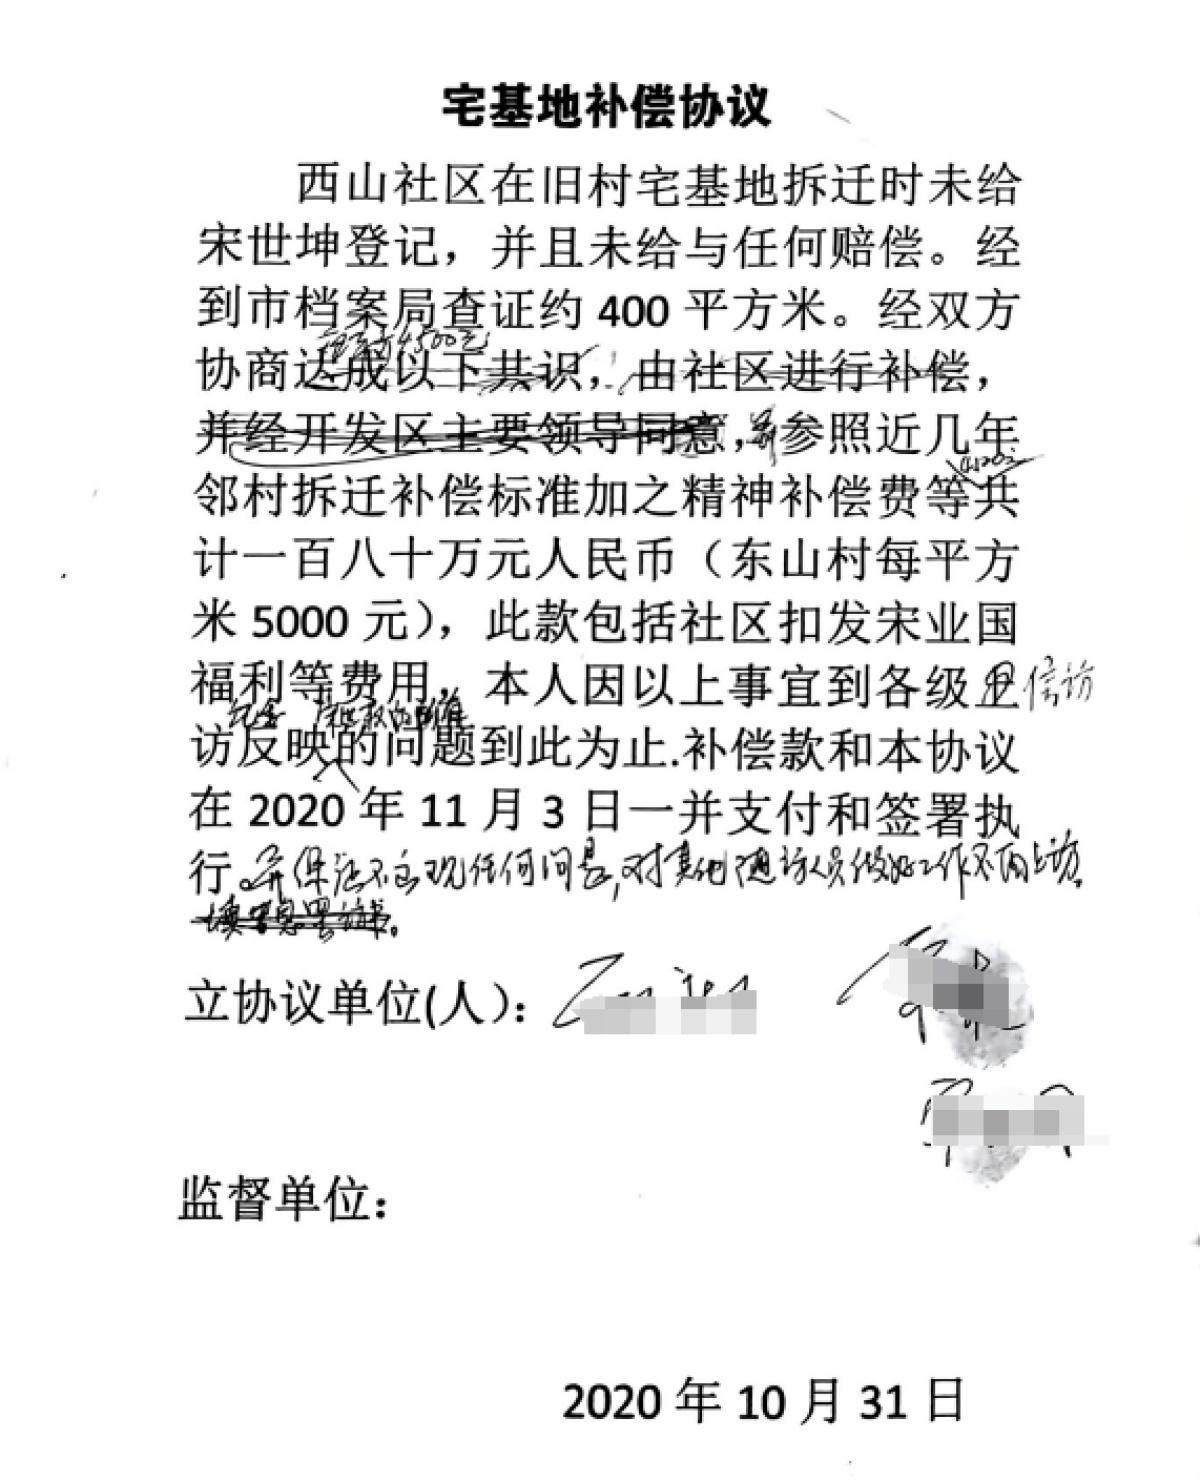 宅基地补偿协议
西山社区在旧村宅基地拆迁时未给
宋世坤登记，并且未给与任何赔偿。经
到市档案局查证约 400 平方米。经双方
4500元
协商达成以下共识，由社区进行补偿，
并经开发区主要领导同意，参照近几年
邻村拆迁补偿标准加之精神补偿费等共
计一百八十万元人民币（东山村每平方
米 5000 元），此款包括社区扣发宋业国
福利等费用，本人因以上事宜到各级 信访
访反映的问题到此为止.补偿款和本协议
在 2020 年 11 月 3 日一并支付和签署执
行。并保证不出现任何问题，对其他上访人员做好工作不再上访。
立协议单位(人)：
监督单位：
2020 年 10 月 31 日